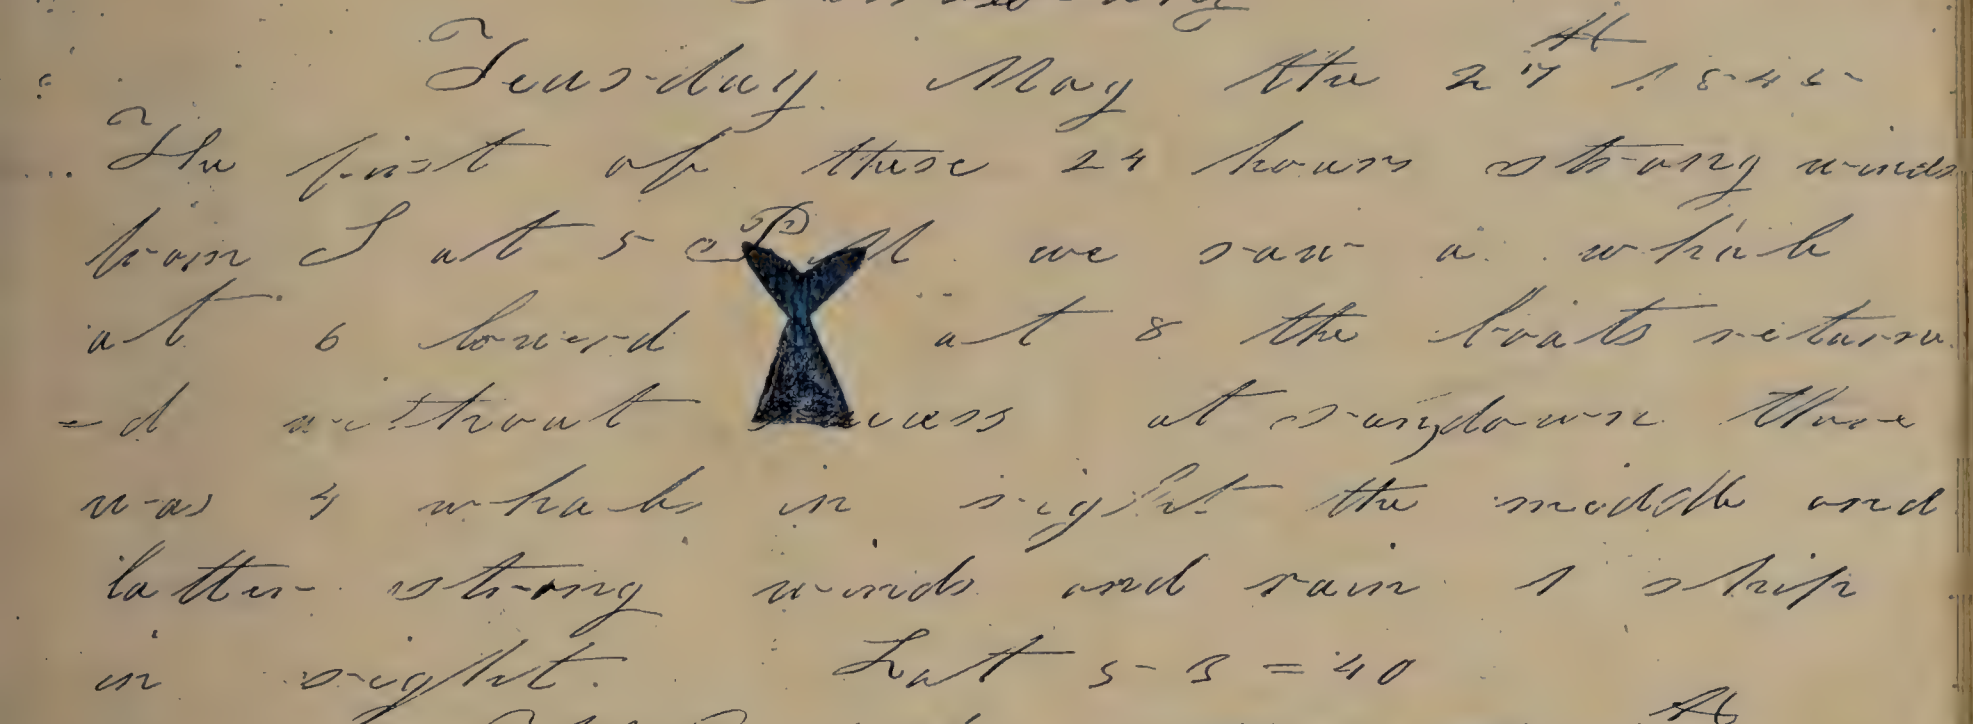 Teusday May the 27th 1845
The first of these 24 hours strong winds
from S at 5 PM we saw a whale
at 6 lowerd at 8 the boats return
=d without success at sungdown thare
was 4 whales in sight the middle and
latter strong winds and rain 1 ship
in sight. Lat 53=40